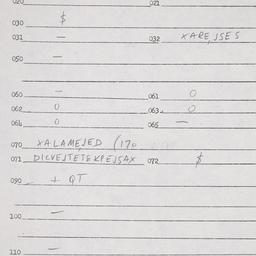 020 021
030 $
031 — 032 XAREJSES
050 —
060 — 061 0
062 0 063 0
064 0 065 —
070 XALAMEJED (170
071 DICVEJTETEKPEJSAX 072 $
090 + QT
100 —
110 —